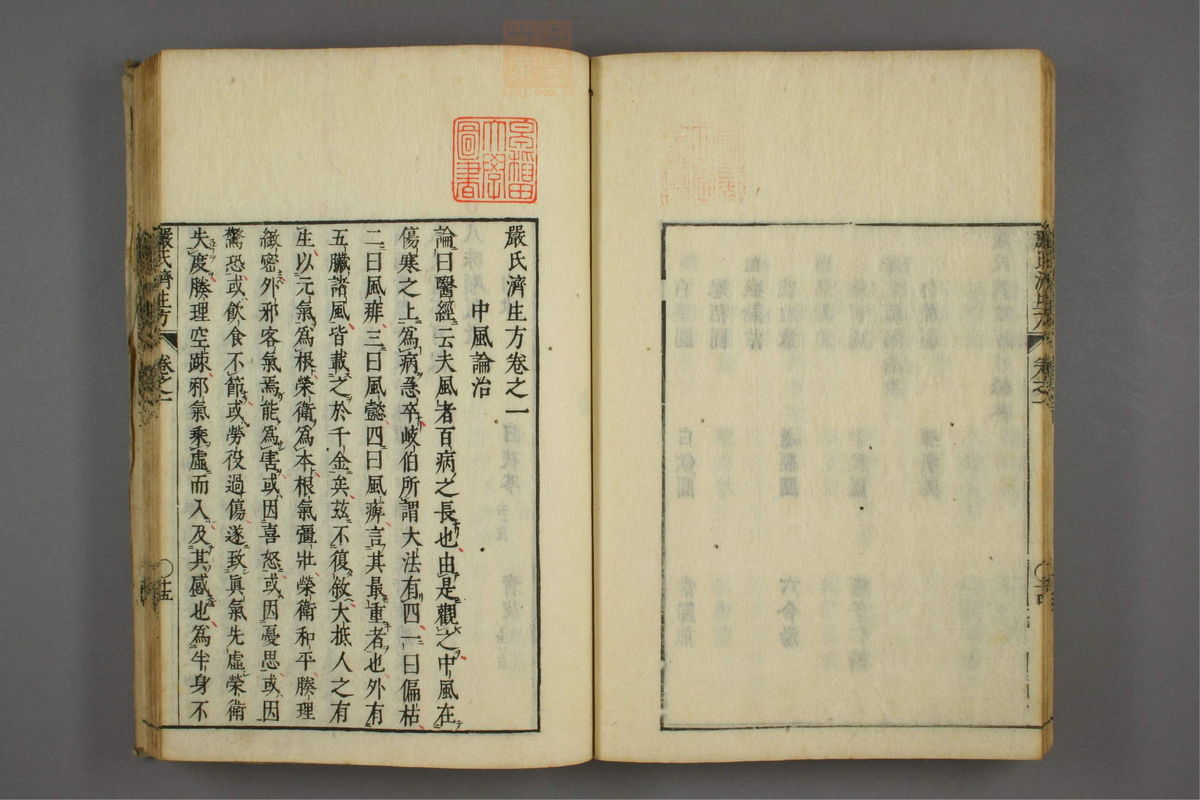 嚴氏濟生方卷之一
中風論治
論曰醫經云夫風者百病之長也由是觀之中風在
傷寒之上爲病急卒岐伯所謂大法有四一曰偏枯
二曰風痱三曰風懿四曰風痺言其最重者也外有
五臟諸風皆載之於千金矣茲不復敘大抵人之有
生以元氣爲根榮衛爲本根氣彊壯榮衛和平腠理
緻密外邪客氣焉能爲害或因喜怒或因憂思或因
驚恐或飲食不節或勞役過傷遂致眞氣先虛榮衛
失度腠理空踈邪氣乘虛而入及其感也爲半身不
嚴氏濟生方
卷之一
〇十五
早稲田大學圖書